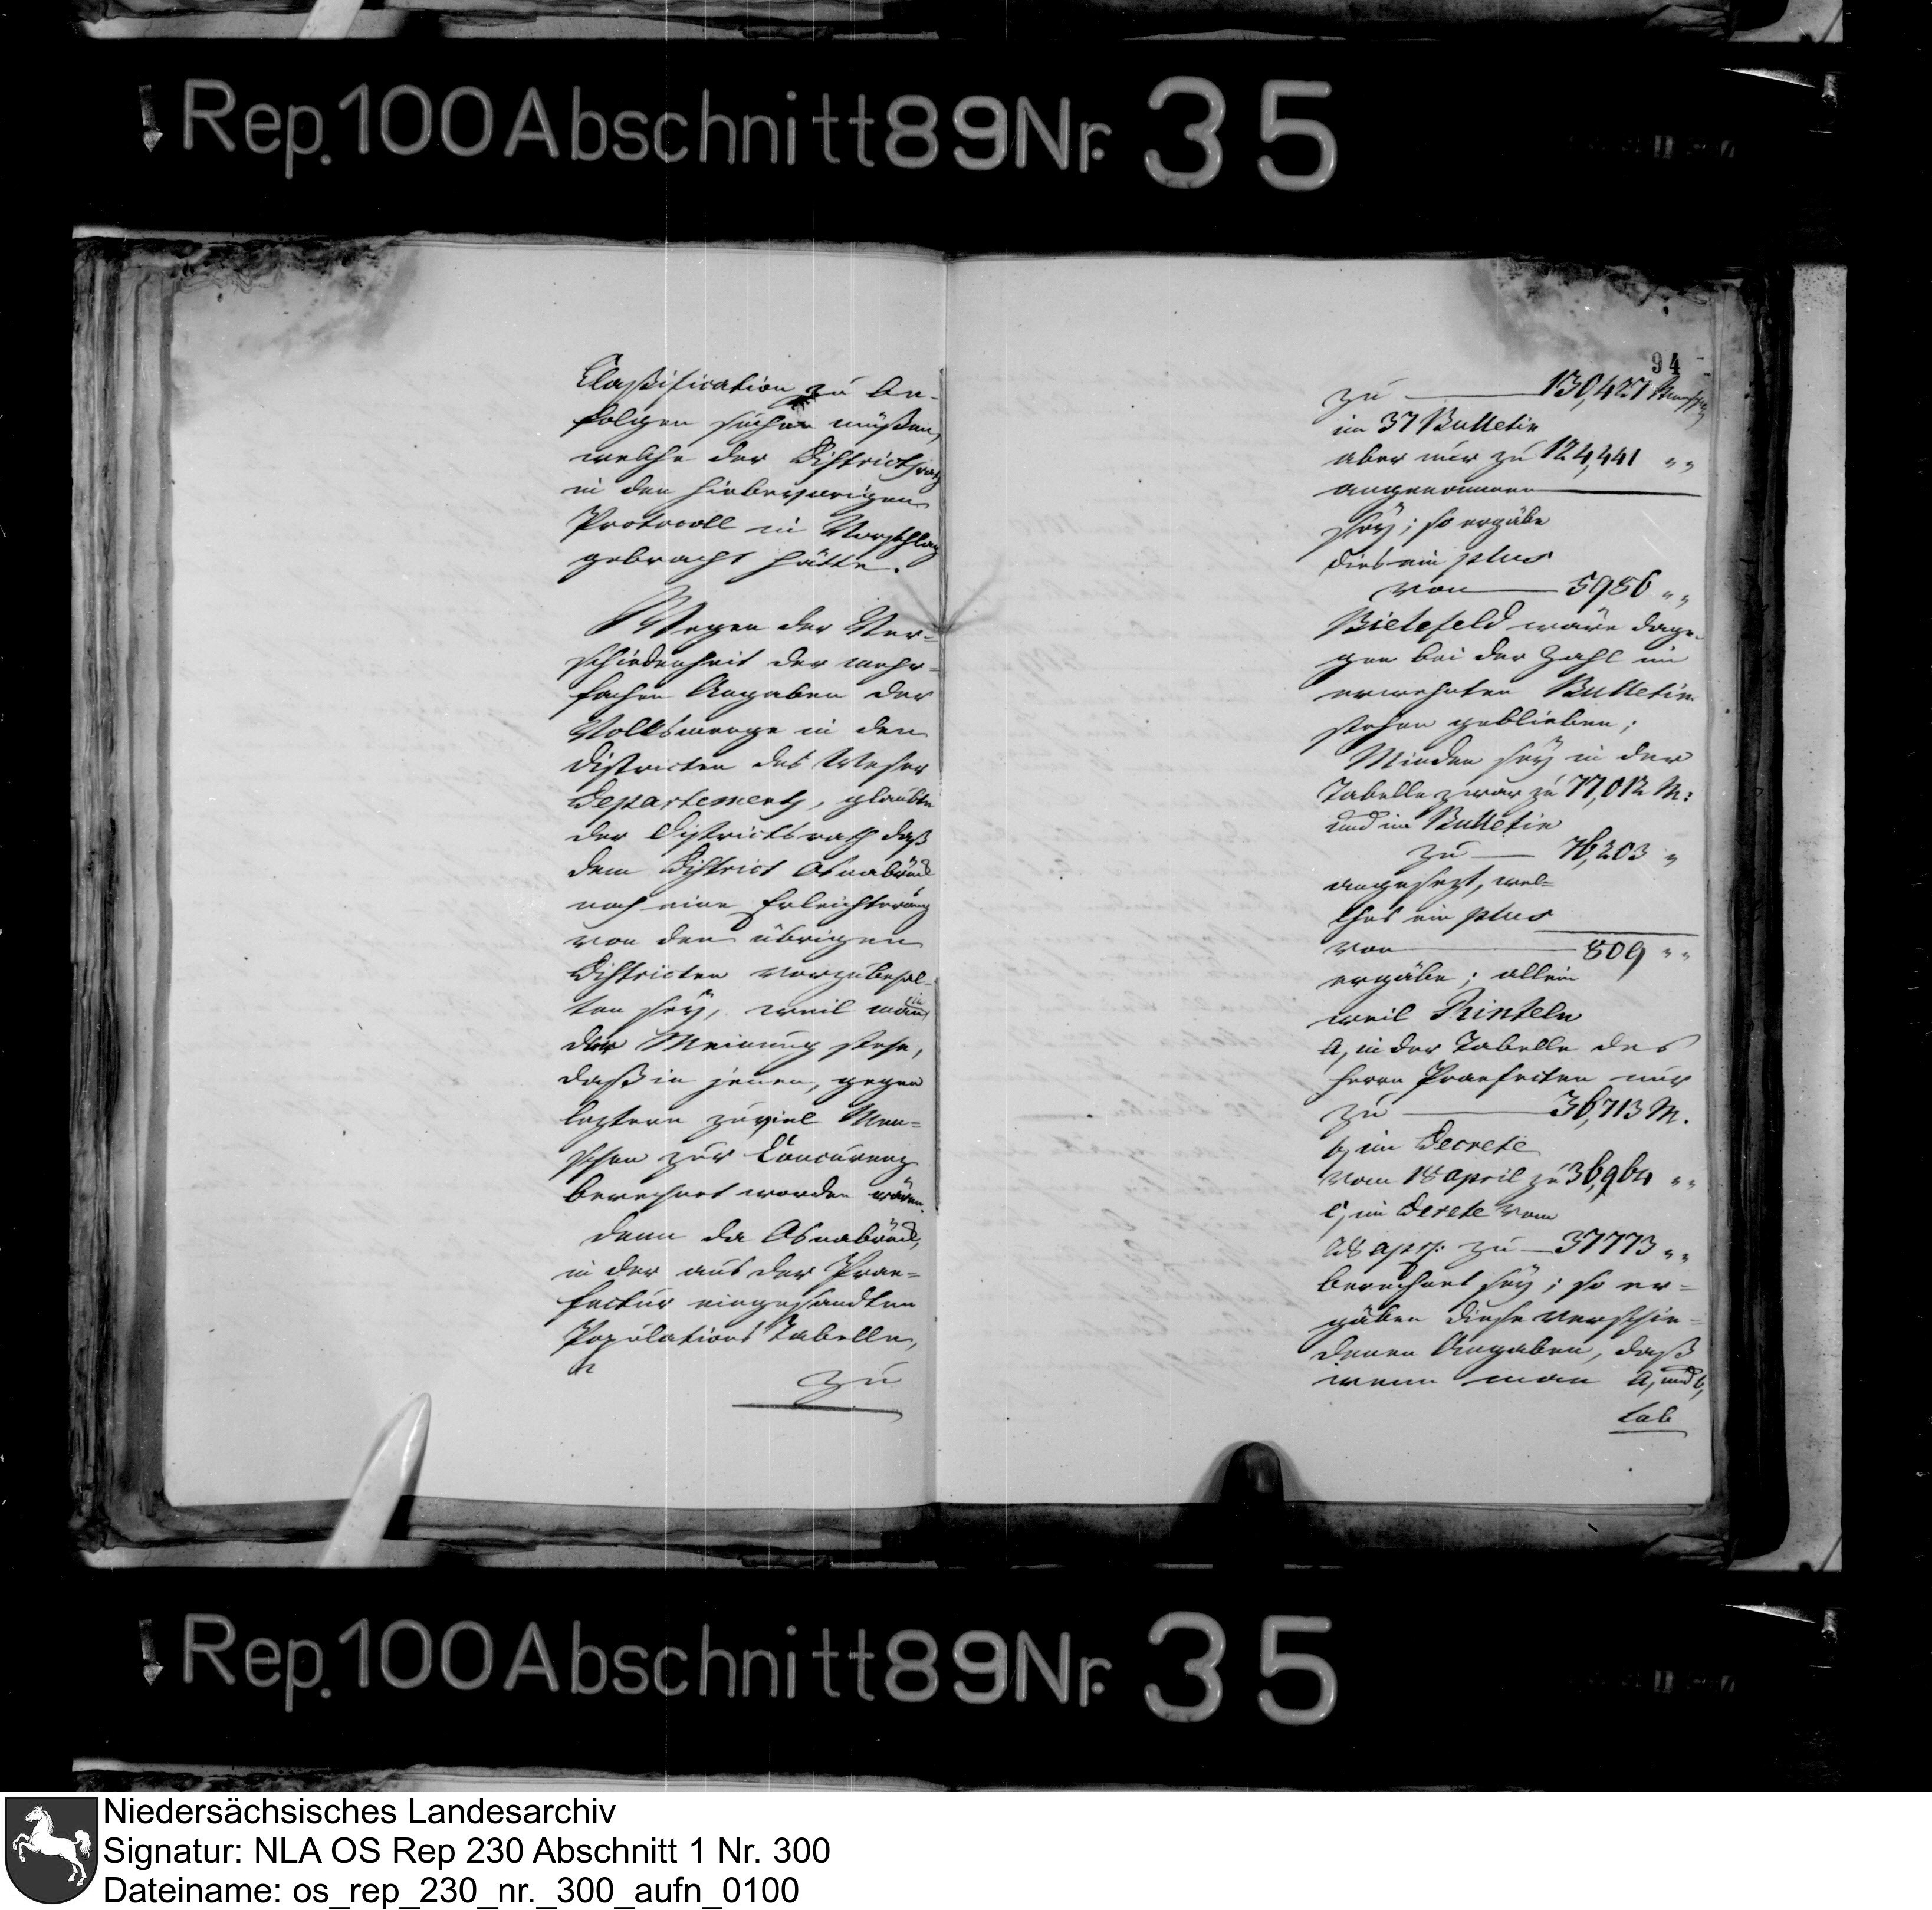 Rep. 100 Abschnitt 89 Nr. 35
Classification zu be-
folgen suchen müßen,
welche der Districtsrath
in den hiebevorigen
Protocoll in Vorschlag
gebracht hätte.
Wegen der Ver-
schiedenheit der mehr-
fachen Angaben der
Volksmenge in den
Districten des Weser
Departements, glaubte
der Districtsrath daß
dem District Osnabrück
noch eine Erleichterung
von den übrigen
Districten vorzubehal-
ten sey, weil man in
der Meinung stehe,
daß in jenen, gegen
leztern zuviel Men-
schen zur Concurenz
berechnet worden wären.
denn da Osnabrück,
in der aus der Prae-
fectur eingesandten
Populations Tabelle,
zu
94
zu 130,427 Menschen
im 37 Bulletin
aber nur zu 124,441 " "
angenommen
sey; so ergäbe
dies ein plus
von 5986 " "
Bielefeld wäre dage-
gen bei der Zahl im
erwehnten Bulletin
stehen geblieben;
Minden sey in der
Tabelle zwar zu 77,012 M:
und im Bulletin
zu 76,203 "
angesezt, wel-
ches ein plus
von 809 " "
ergäbe; allein
weil Rinteln
a, in der Tabelle des
Herrn Praefecten nur
zu 36,713 M.
b, im Decrete
vom 18 april zu 36,964 " "
c, im Decrete vom
28 apr: zu 37773 " "
berechnet sey; so er-
gäben diese verschie-
denen Angaben, daß
wenn man a, und b,
Rep. 100 Abschnitt 89 Nr. 35
Niedersächsisches Landesarchiv
Signatur: NLA OS Rep 230 Abschnitt 1 Nr. 300
Dateiname: os_rep_230_nr._300_aufn_0100